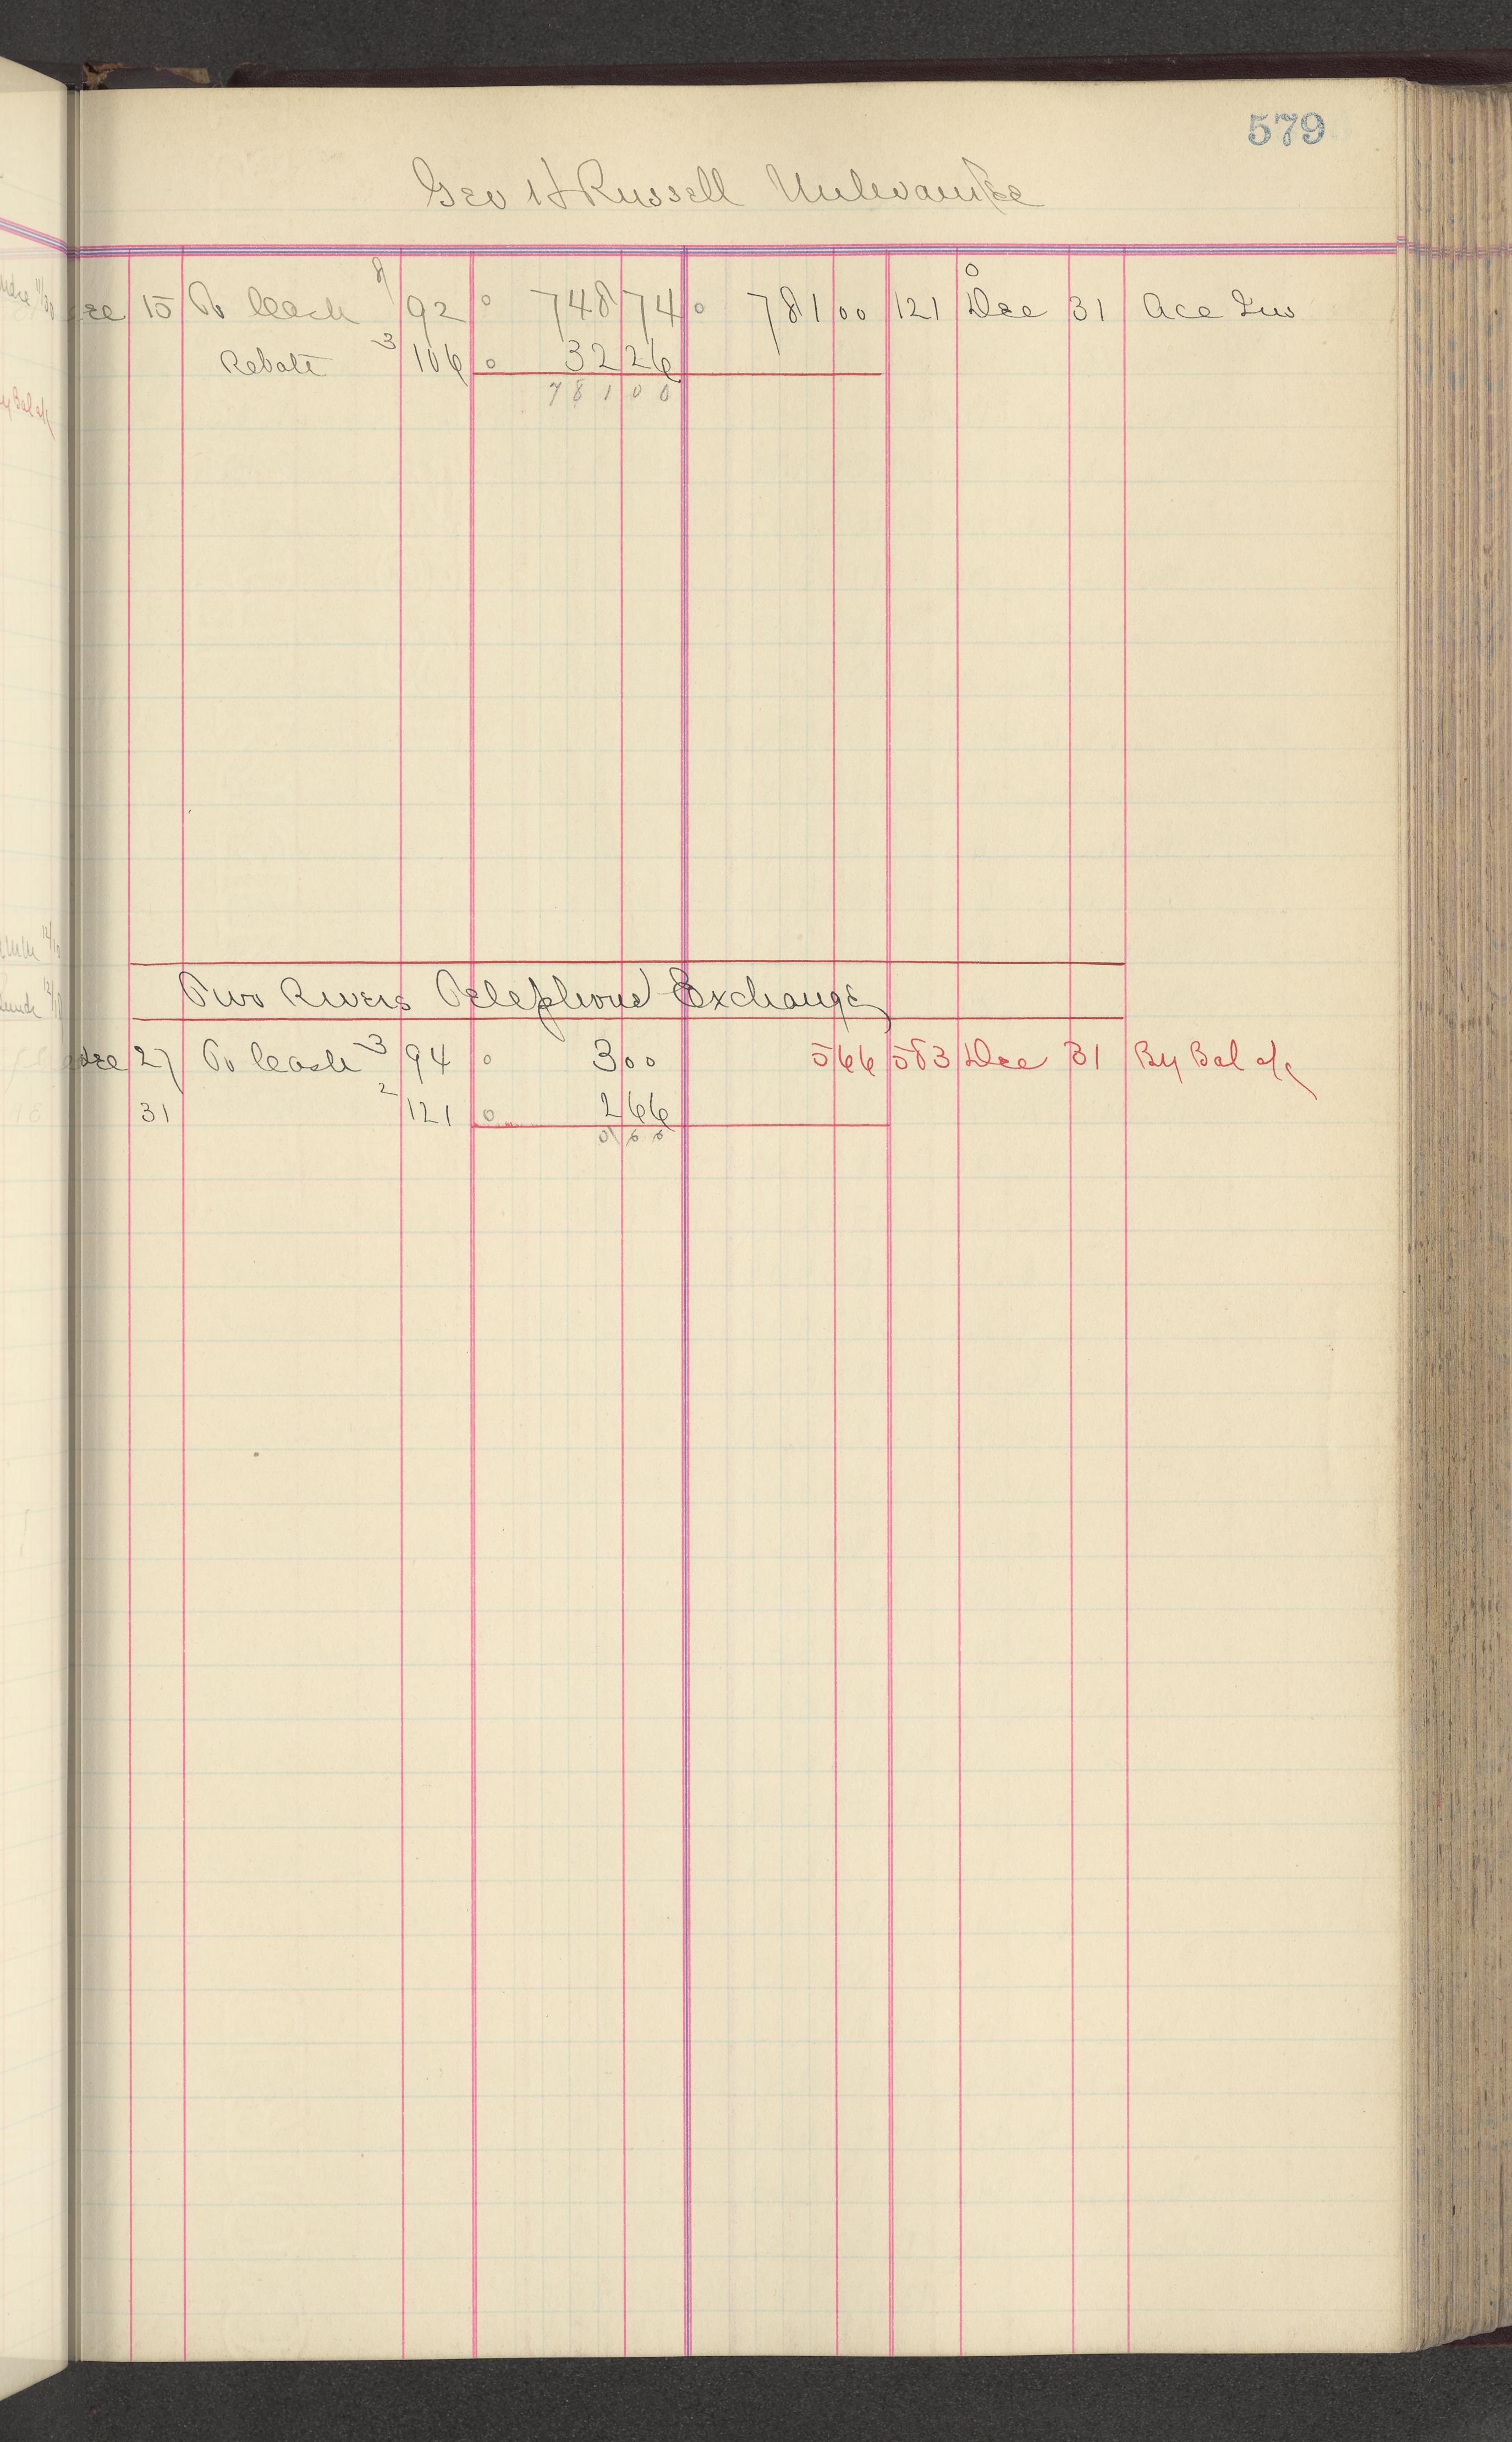 579
Geo H Russell Milwaukee
Dec 15 To Cash 8/92 748 74 781 00 121 Dec 31 Acc Inv
Rebate 3/106 32 26
781 00
Two Rivers Telephone Exchange
Dec 27 To Cash 3/94 3 00 5 66 583 Dec 31 By Bal c/f
31 2/121 2 66
5 66